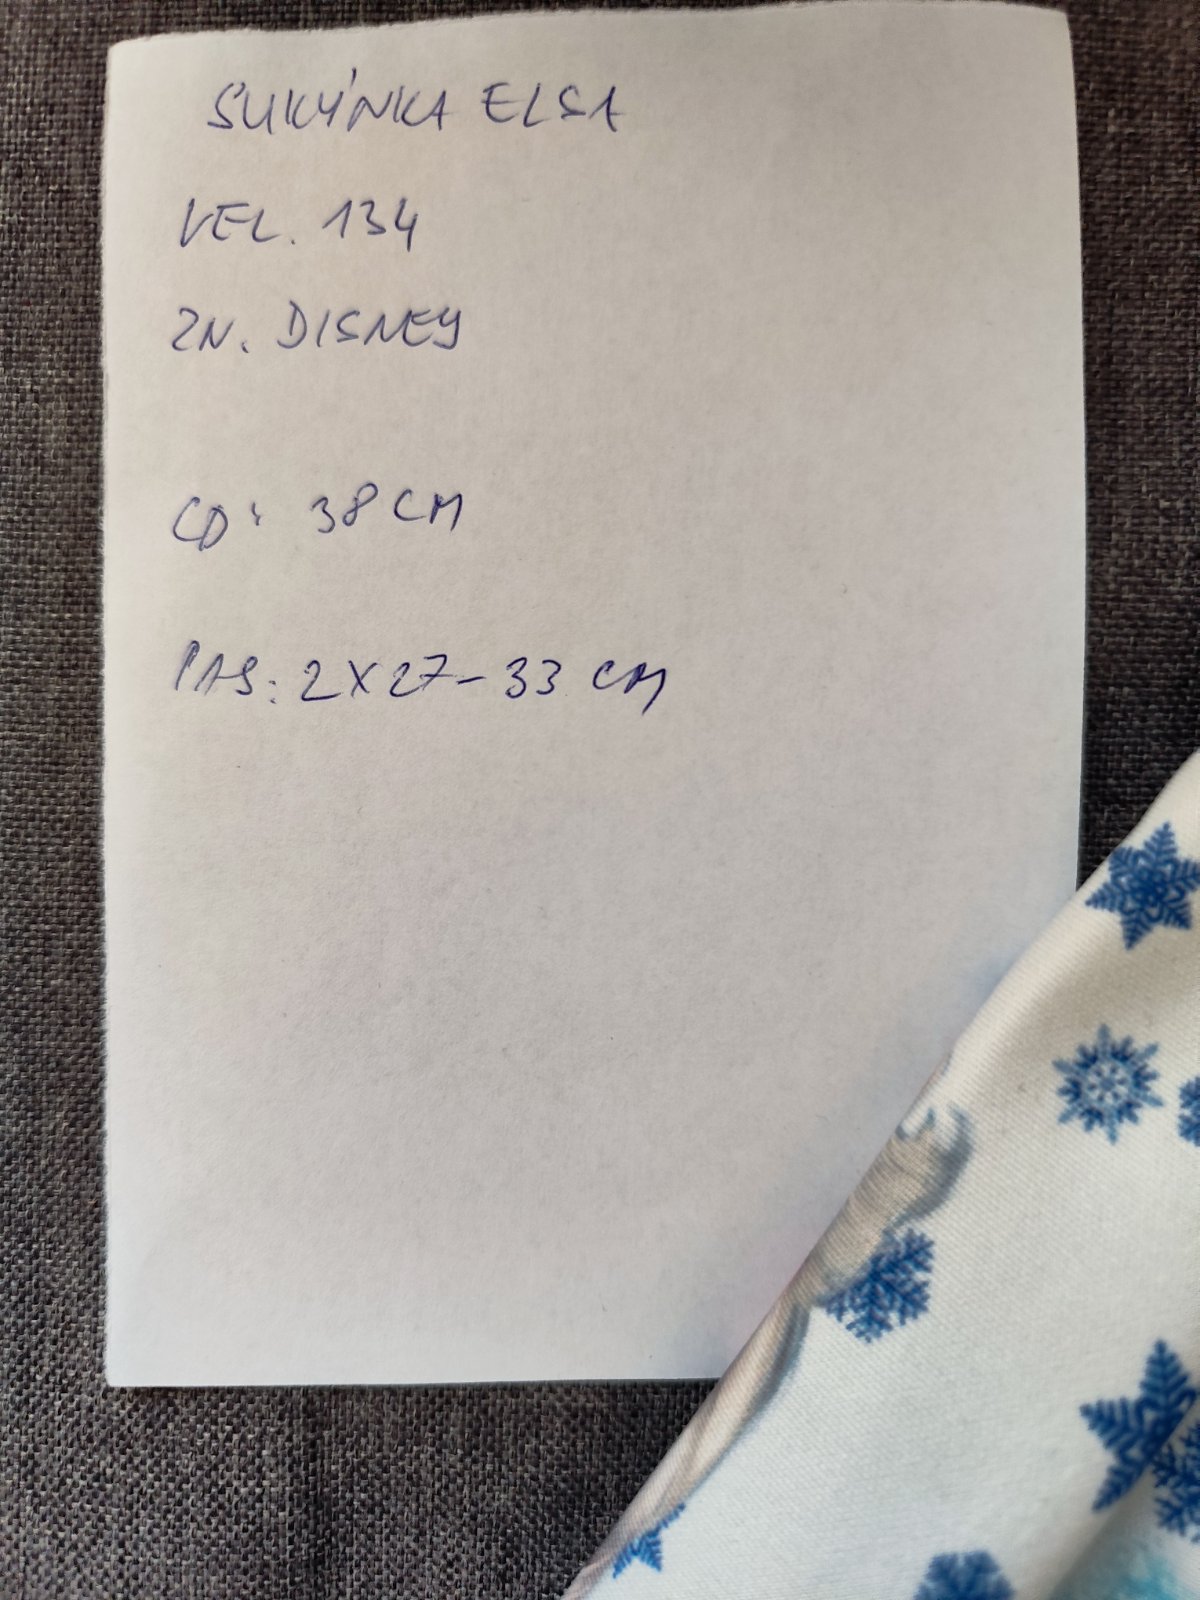 SUKÝNKA ELSA
VEL. 134
ZN. DISNEY
CD: 38 CM
PAS: 2X27-33 CM